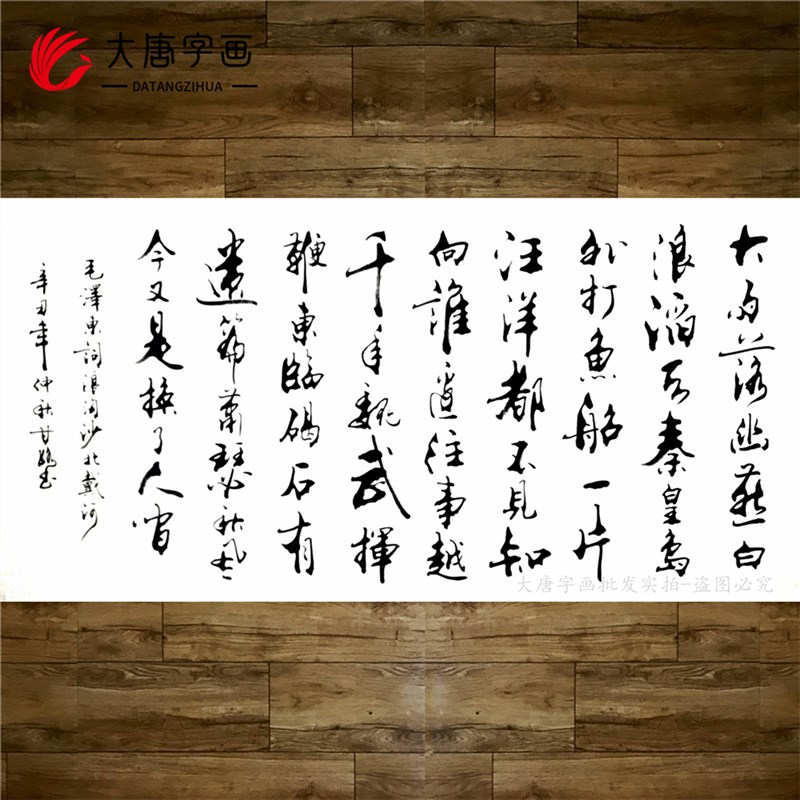 大唐字画
DATANGZIHUA
大雨落幽燕白
浪滔天秦皇島
外打魚船一片
汪洋都不見知
向誰邊往事越
千年魏武揮
鞭東臨碣石有
遺篇蕭瑟秋風
今又是換了人間
毛澤東詞浪淘沙北戴河
辛丑年仲秋甘书
大唐字画批发实拍-盗图必究